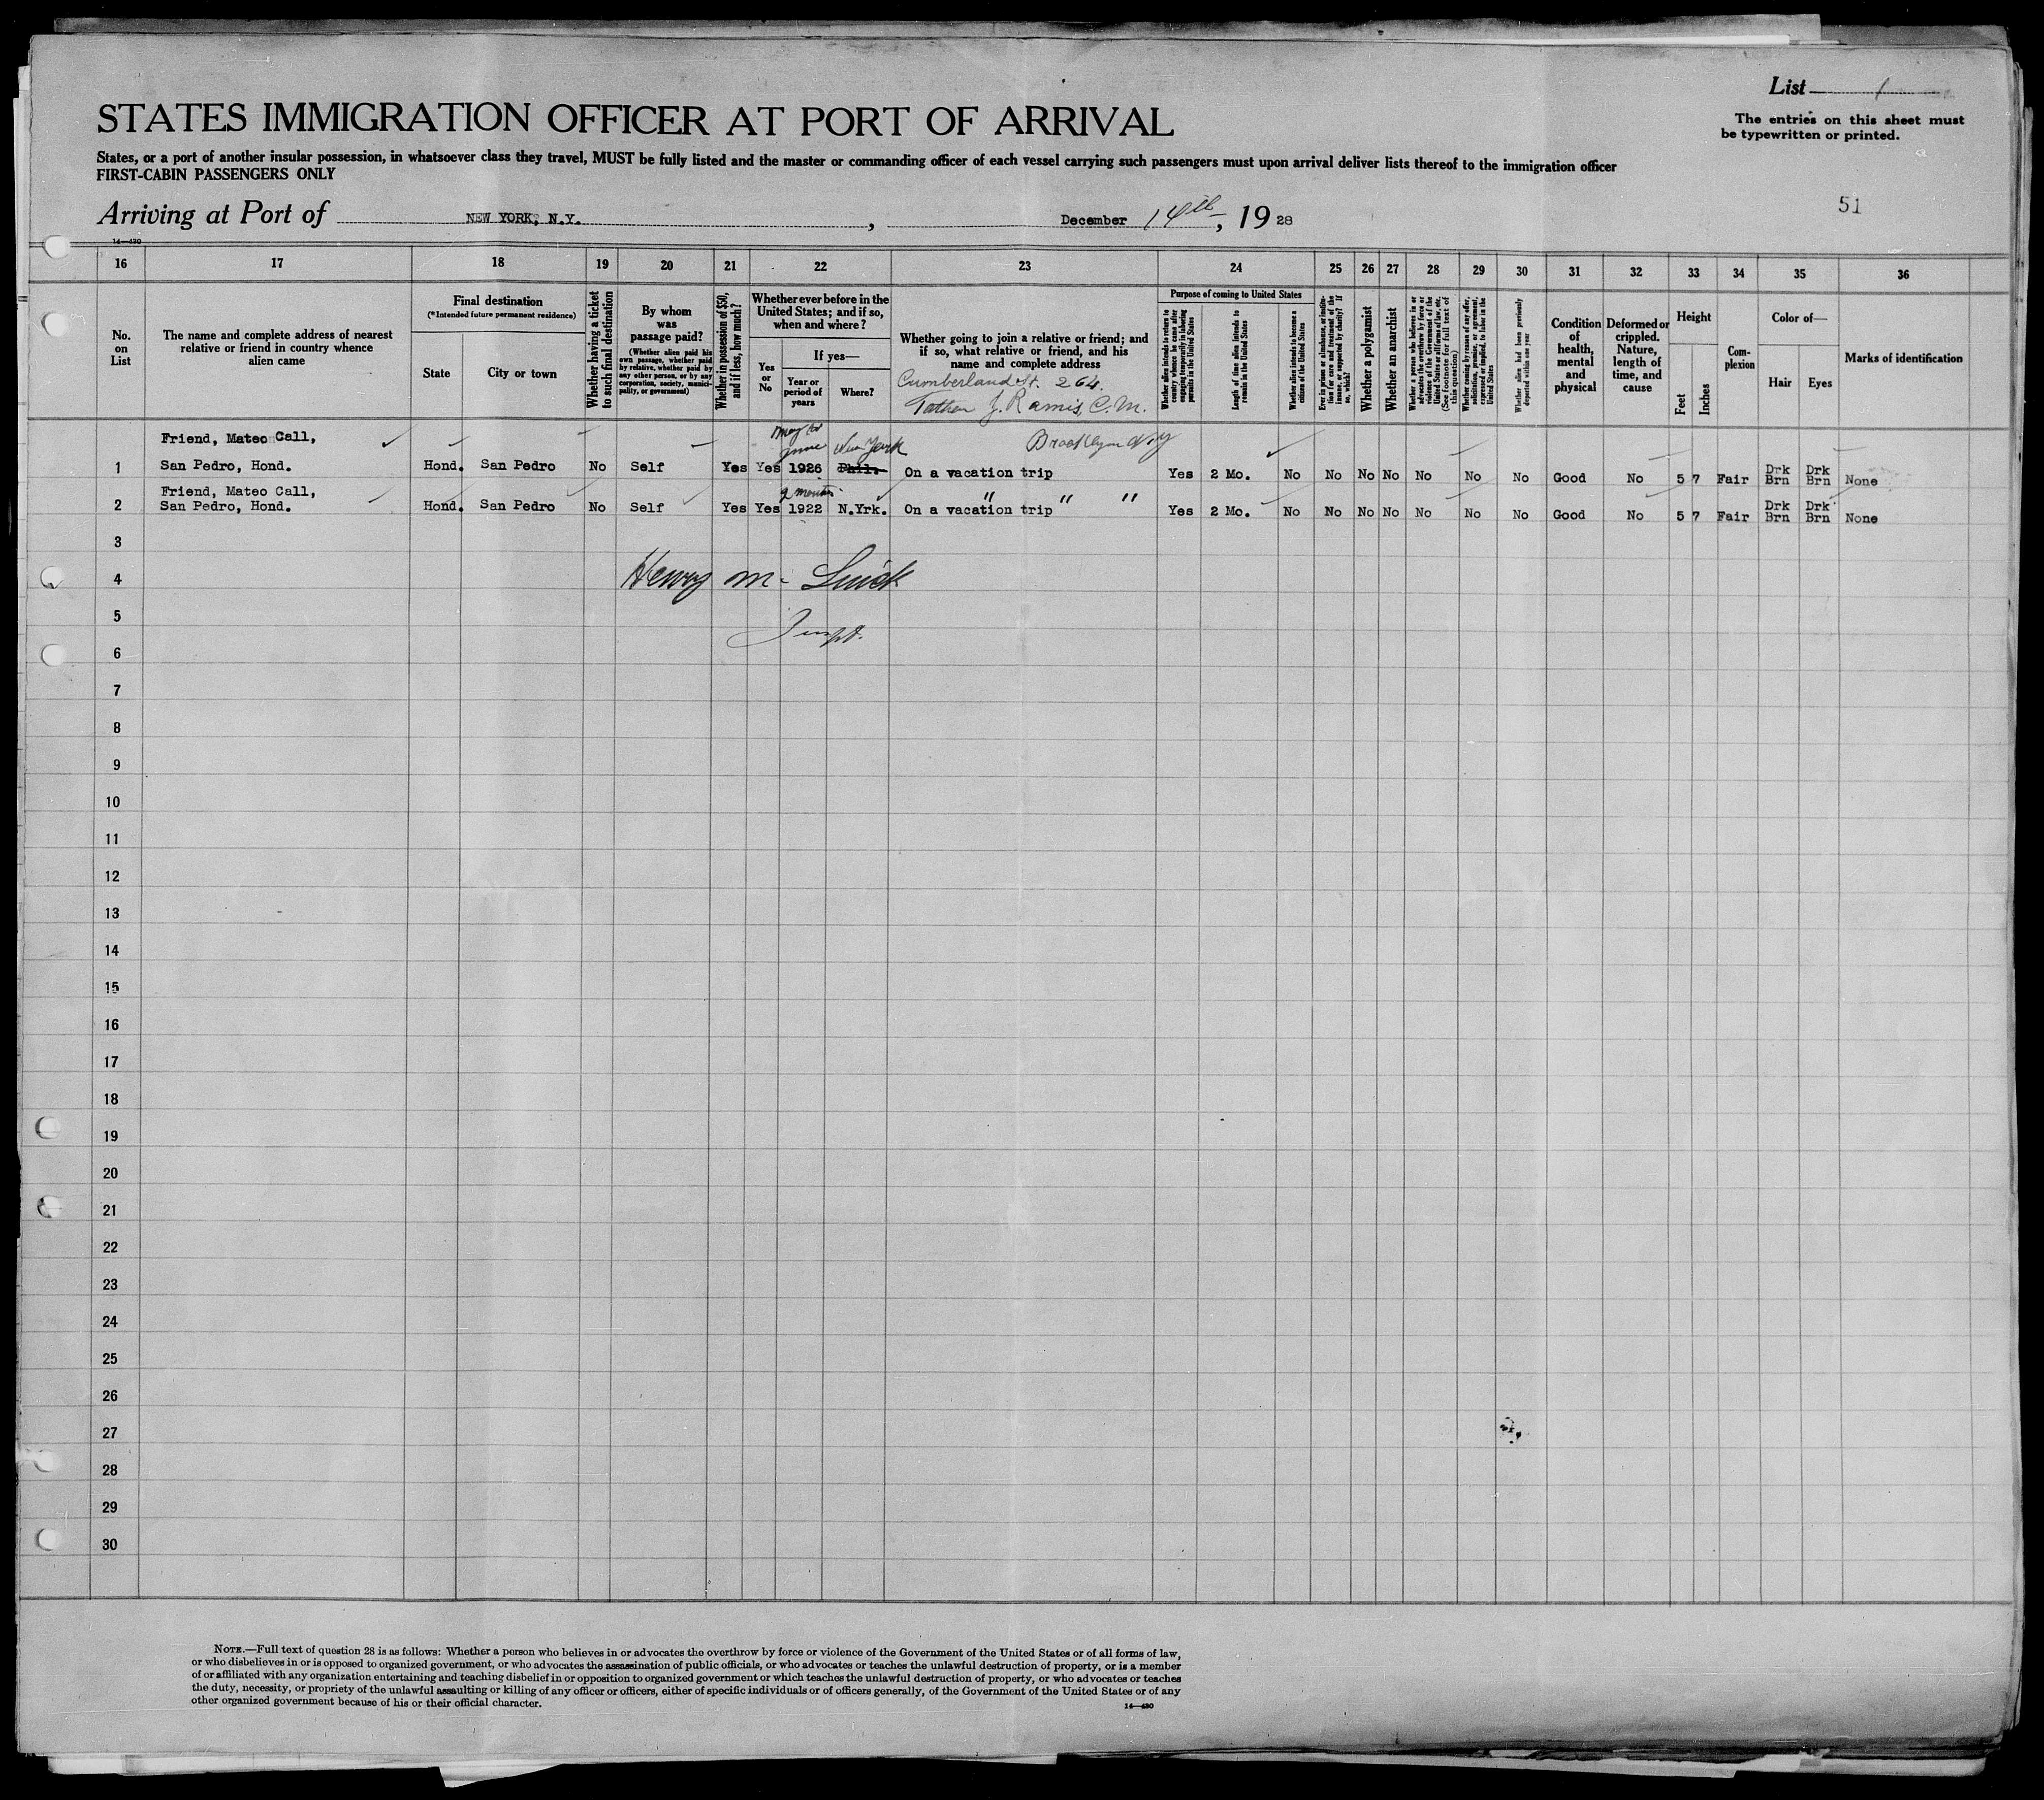 List 1
STATES IMMIGRATION OFFICER AT PORT OF ARRIVAL
The entries on this sheet must
be typewritten or printed.
States, or a port of another insular possession, in whatsoever class they travel, MUST be fully listed and the master or commanding officer of each vessel carrying such passengers must upon arrival deliver lists thereof to the immigration officer
FIRST-CABIN PASSENGERS ONLY
51
Arriving at Port of NEW YORK, N.Y., December 14th, 1928
14—430
16 17 18 19 20 21 22 23 24 25 26 27 28 29 30 31 32 33 34 35 36
No. on List
The name and complete address of nearest relative or friend in country whence alien came
Final destination
(*Intended future permanent residence)
State
City or town
Whether having a ticket to such final destination
By whom was passage paid?
(Whether alien paid his own passage, whether paid by relative, whether paid by any other person, or by any corporation, society, municipality, or government)
Whether in possession of $50, and if less, how much?
Whether ever before in the United States; and if so, when and where?
Yes or No
If yes—
Year or period of years
Where?
Whether going to join a relative or friend; and if so, what relative or friend, and his name and complete address
Cumberland St. 264.
Father J. Ramis, C.M.
Brooklyn N.Y
Purpose of coming to United States
Whether alien intends to return to country whence he came after engaging temporarily in laboring pursuits in the United States
Length of time alien intends to remain in the United States
Whether alien intends to become a citizen of the United States
Ever in prison or almshouse, or institution for care and treatment of the insane, or supported by charity? If so, which?
Whether a polygamist
Whether an anarchist
Whether a person who believes in or advocates the overthrow by force or violence of the Government of the United States or all forms of law, etc. (See footnote for full text of this question)
Whether coming by reason of any offer, solicitation, promise, or agreement, expressed or implied, to labor in the United States
Whether alien had been previously deported within one year
Condition of health, mental and physical
Deformed or crippled. Nature, length of time, and cause
Height
Feet
Inches
Complexion
Color of—
Hair
Eyes
Marks of identification
May to June New York
1 Friend, Mateo Call, San Pedro, Hond. Hond. San Pedro No Self Yes Yes 1926 Phil. On a vacation trip Yes 2 Mo. No No No No No No No Good No 5 7 Fair Drk Brn Drk Brn None
2 months
2 Friend, Mateo Call, San Pedro, Hond. Hond. San Pedro No Self Yes Yes 1922 N.Yrk. On a vacation trip " " " Yes 2 Mo. No No No No No No No Good No 5 7 Fair Drk Brn Drk Brn None
3
4 Henry M.
5
Inspt.
6
7
8
9
10
11
12
13
14
15
16
17
18
19
20
21
22
23
24
25
26
27
28
29
30
NOTE.—Full text of question 28 is as follows: Whether a person who believes in or advocates the overthrow by force or violence of the Government of the United States or of all forms of law,
or who disbelieves in or is opposed to organized government, or who advocates the assassination of public officials, or who advocates or teaches the unlawful destruction of property, or is a member
of or affiliated with any organization entertaining and teaching disbelief in or opposition to organized government or which teaches the unlawful destruction of property, or who advocates or teaches
the duty, necessity, or propriety of the unlawful assaulting or killing of any officer or officers, either of specific individuals or of officers generally, of the Government of the United States or of any
other organized government because of his or their official character.
14—430